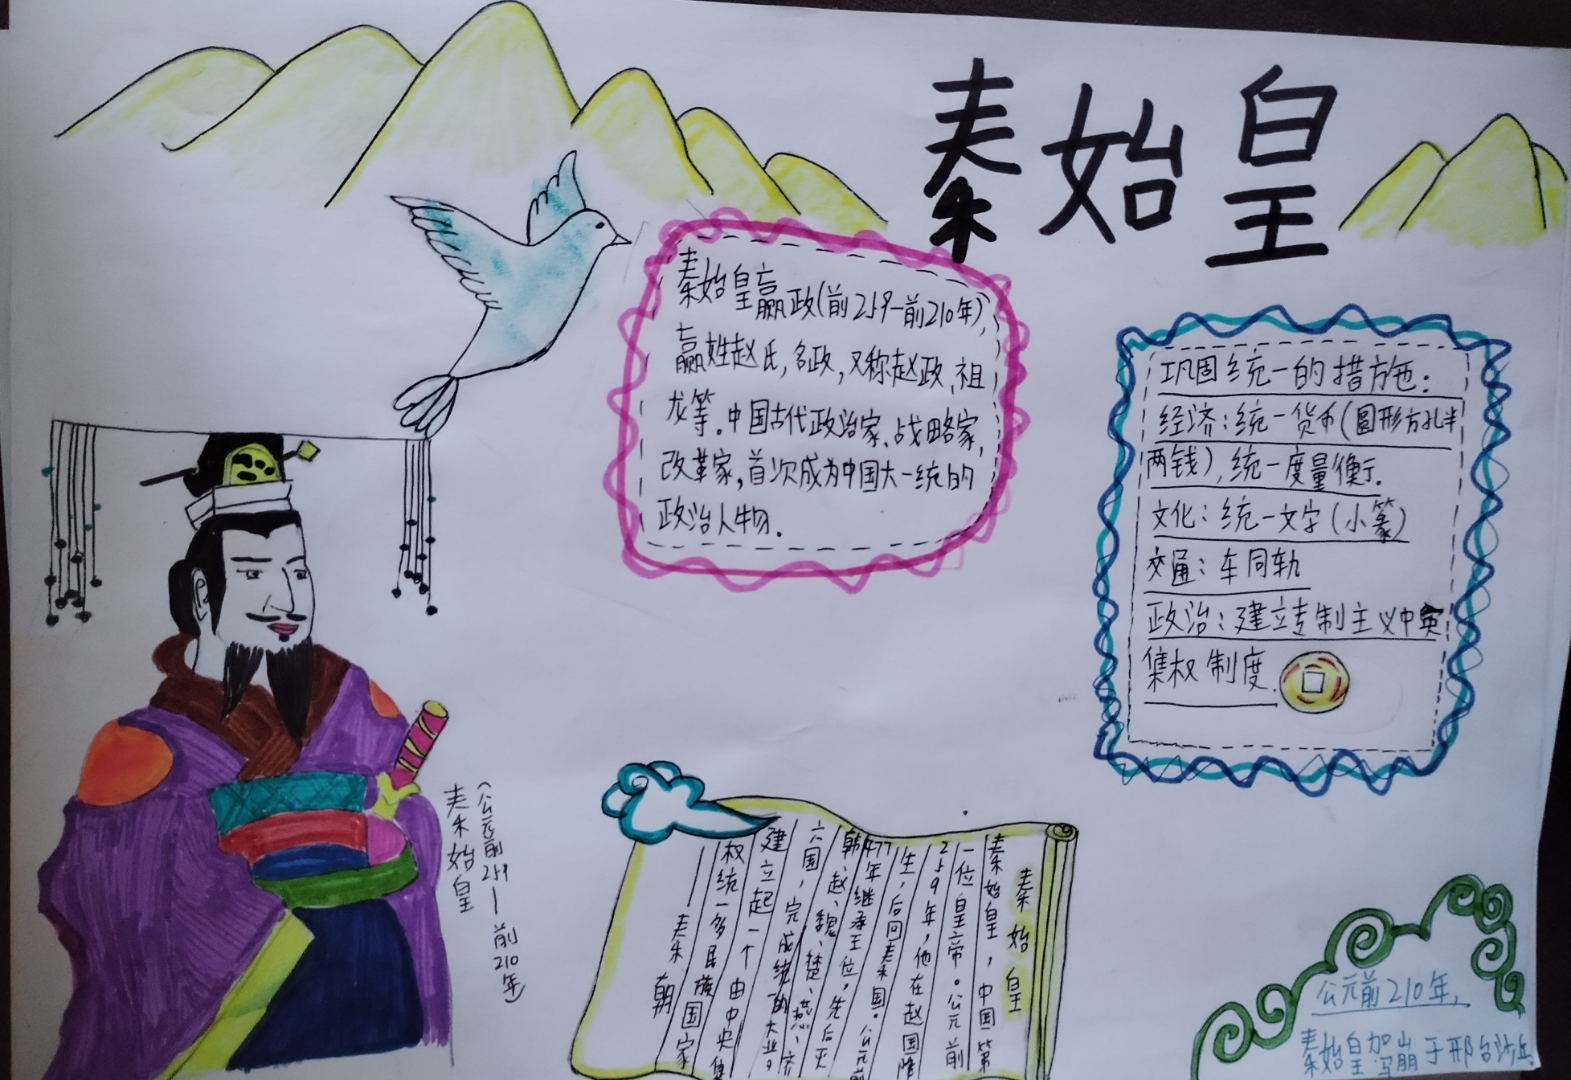 秦始皇
秦始皇嬴政(前259—前210年),
嬴姓赵氏,名政,又称赵政、祖
龙等。中国古代政治家、战略家,
改革家,首次成为中国大一统的
政治人物.
巩固统一的措施:
经济:统一货币(圆形方孔半
两钱),统一度量衡.
文化:统一文字(小篆)
交通:车同轨
政治:建立专制主义中央
集权制度.
(公元前259—前210年)
秦始皇
秦始皇
秦始皇,中国第
一位皇帝。公元前
259年,他在赵国降
生,后回秦国。公元前
年继承王位。先后灭
韩、赵、魏、楚、燕、齐
六国,完成统的大业。
建立起一个由中央集
权统一多民族国家
——秦朝
公元前210年,
秦始皇驾崩于邢台沙丘.